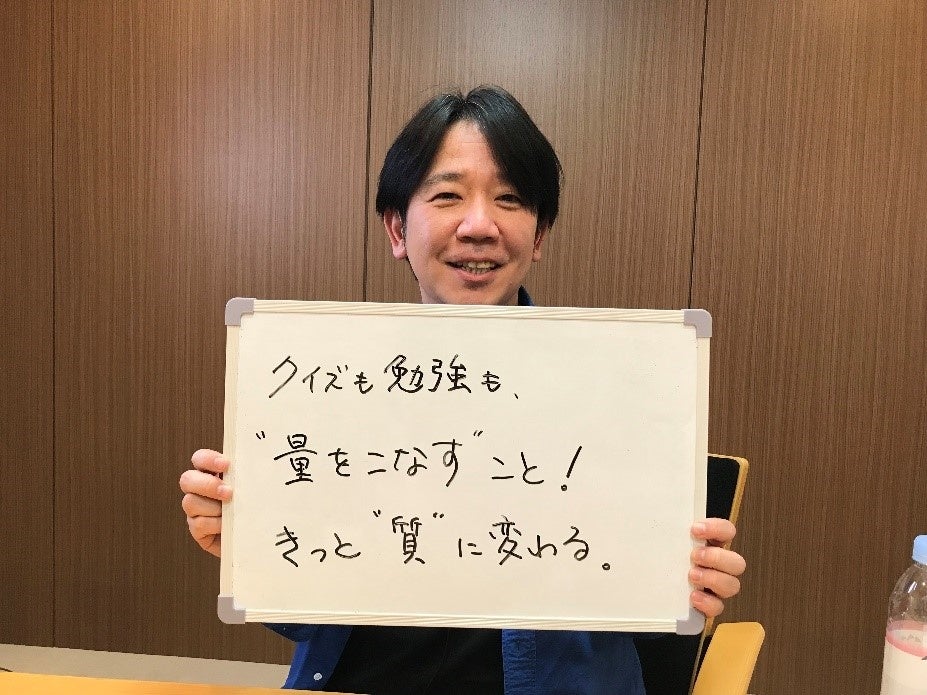 クイズも勉強も、
"量をこなす"こと!
きっと"質"に変わる。